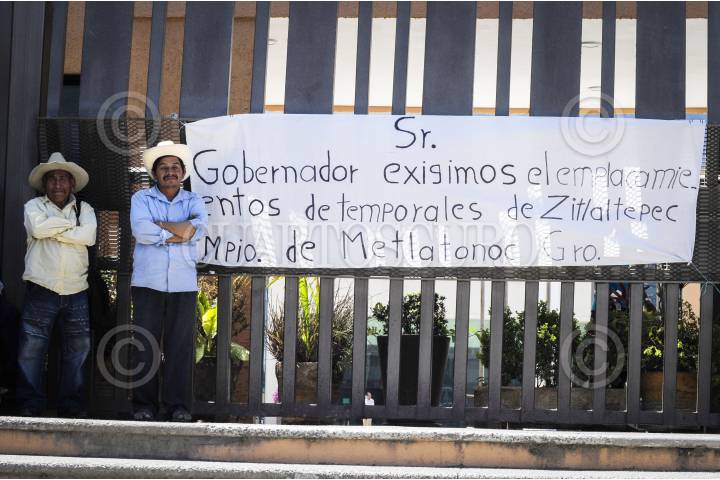 Sr.
Gobernador exigimos el emplacamie_
entos de temporales de Zitlaltepec
Mpio. de Metlatonoc Gro.
CUARTOSCURO